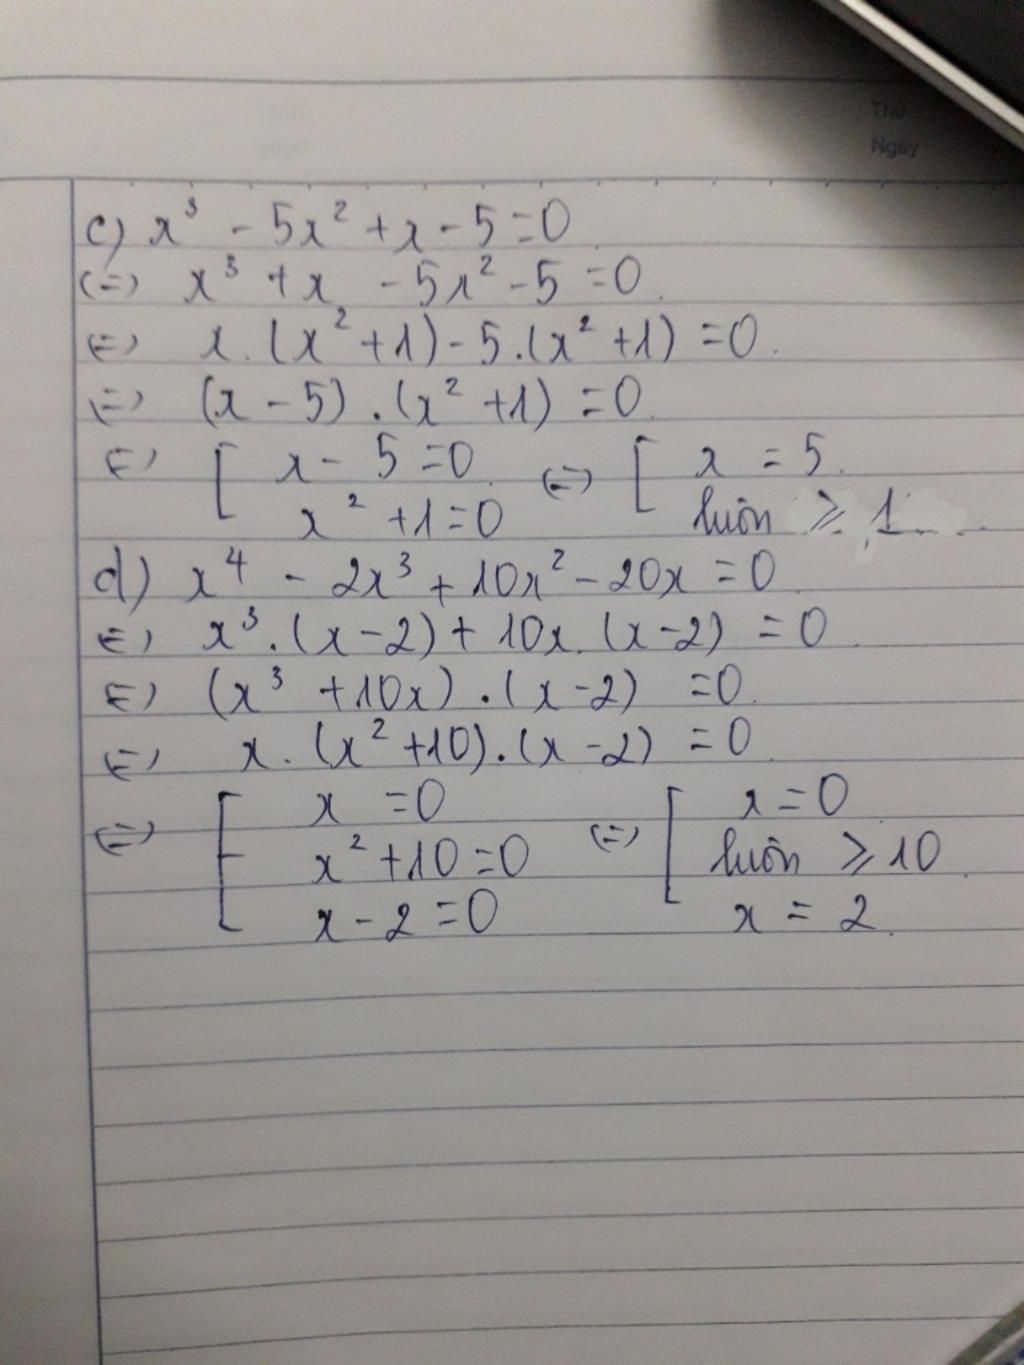 Thứ
Ngày
c) x³ - 5x² + x - 5 = 0
(=) x³ + x - 5x² - 5 = 0.
(=) x.(x² + 1) - 5.(x² + 1) = 0.
(=) (x - 5).(x² + 1) = 0.
(=) [ x - 5 = 0 (=) [ x = 5.
x² + 1 = 0 luôn ⩾ 1
d) x⁴ - 2x³ + 10x² - 20x = 0
(=) x³.(x - 2) + 10x.(x - 2) = 0.
(=) (x³ + 10x).(x - 2) = 0.
(=) x.(x² + 10).(x - 2) = 0
(=) [ x = 0 (=) [ x = 0
x² + 10 = 0 luôn ⩾ 10
x - 2 = 0 x = 2.